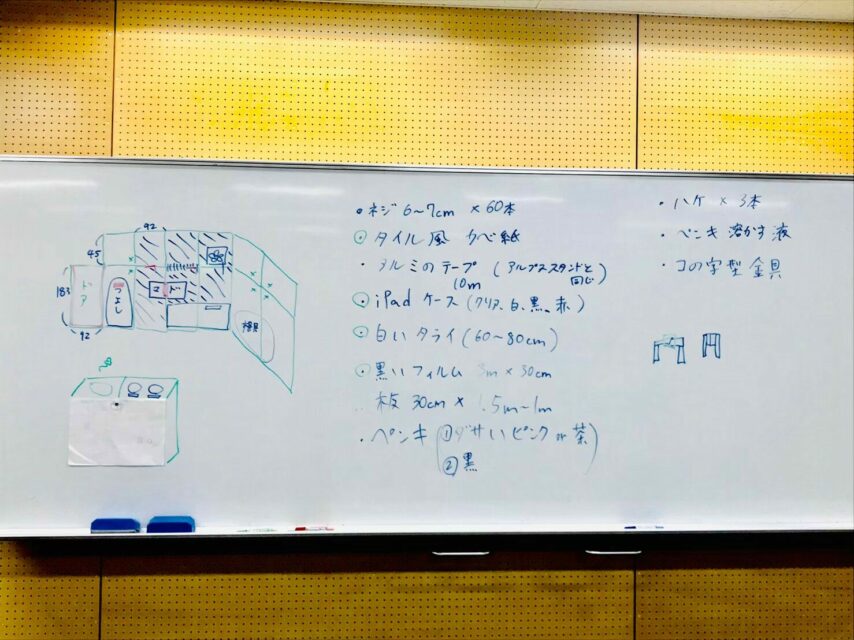 92
45
183
ドア
つよし
マド
92
・ネジ 6〜7cm ×60本
・タイル風 カベ紙
・アルミのテープ (アルプススタンドと同じ)
10m
・iPad ケース (クリア、白、黒、赤)
・白いタライ (60〜80cm)
・黒いフィルム 3m × 30cm
木板 30cm × 1.5m〜1m
・ペンキ (①ダサいピンク or 茶)
②黒
・ハケ × 3本
・ペンキ 溶かす液
・コの字型金具